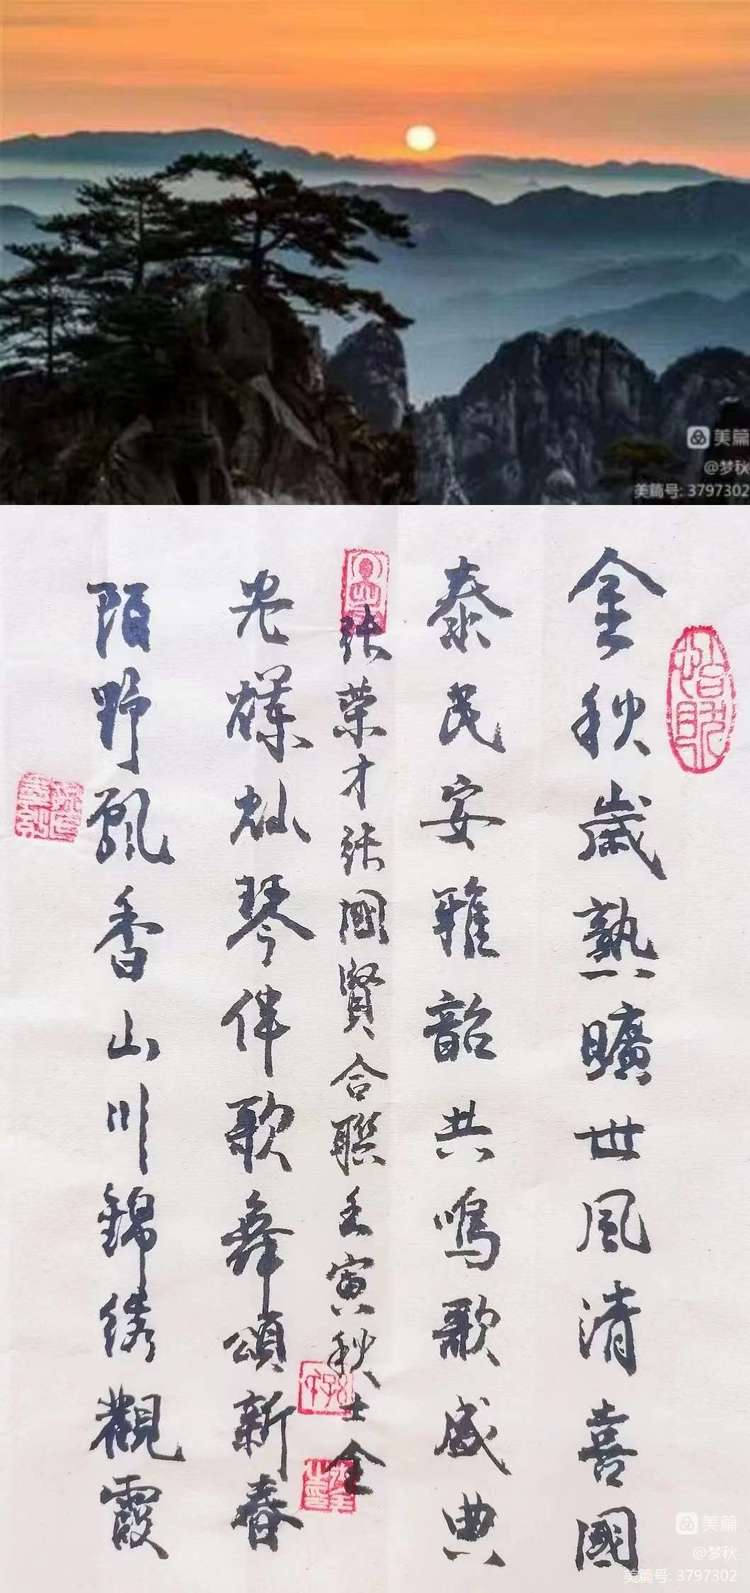 美篇
@梦秋
美篇号: 3797302
金秋歲熟曠世風清喜國
泰民安雅韶共鳴歌盛典
陌野飄香山川錦绣觀霞
光灿琴伴歌舞頌新春
张荣才张國賢合聯壬寅秋士全
美篇
@梦秋
美篇号: 3797302